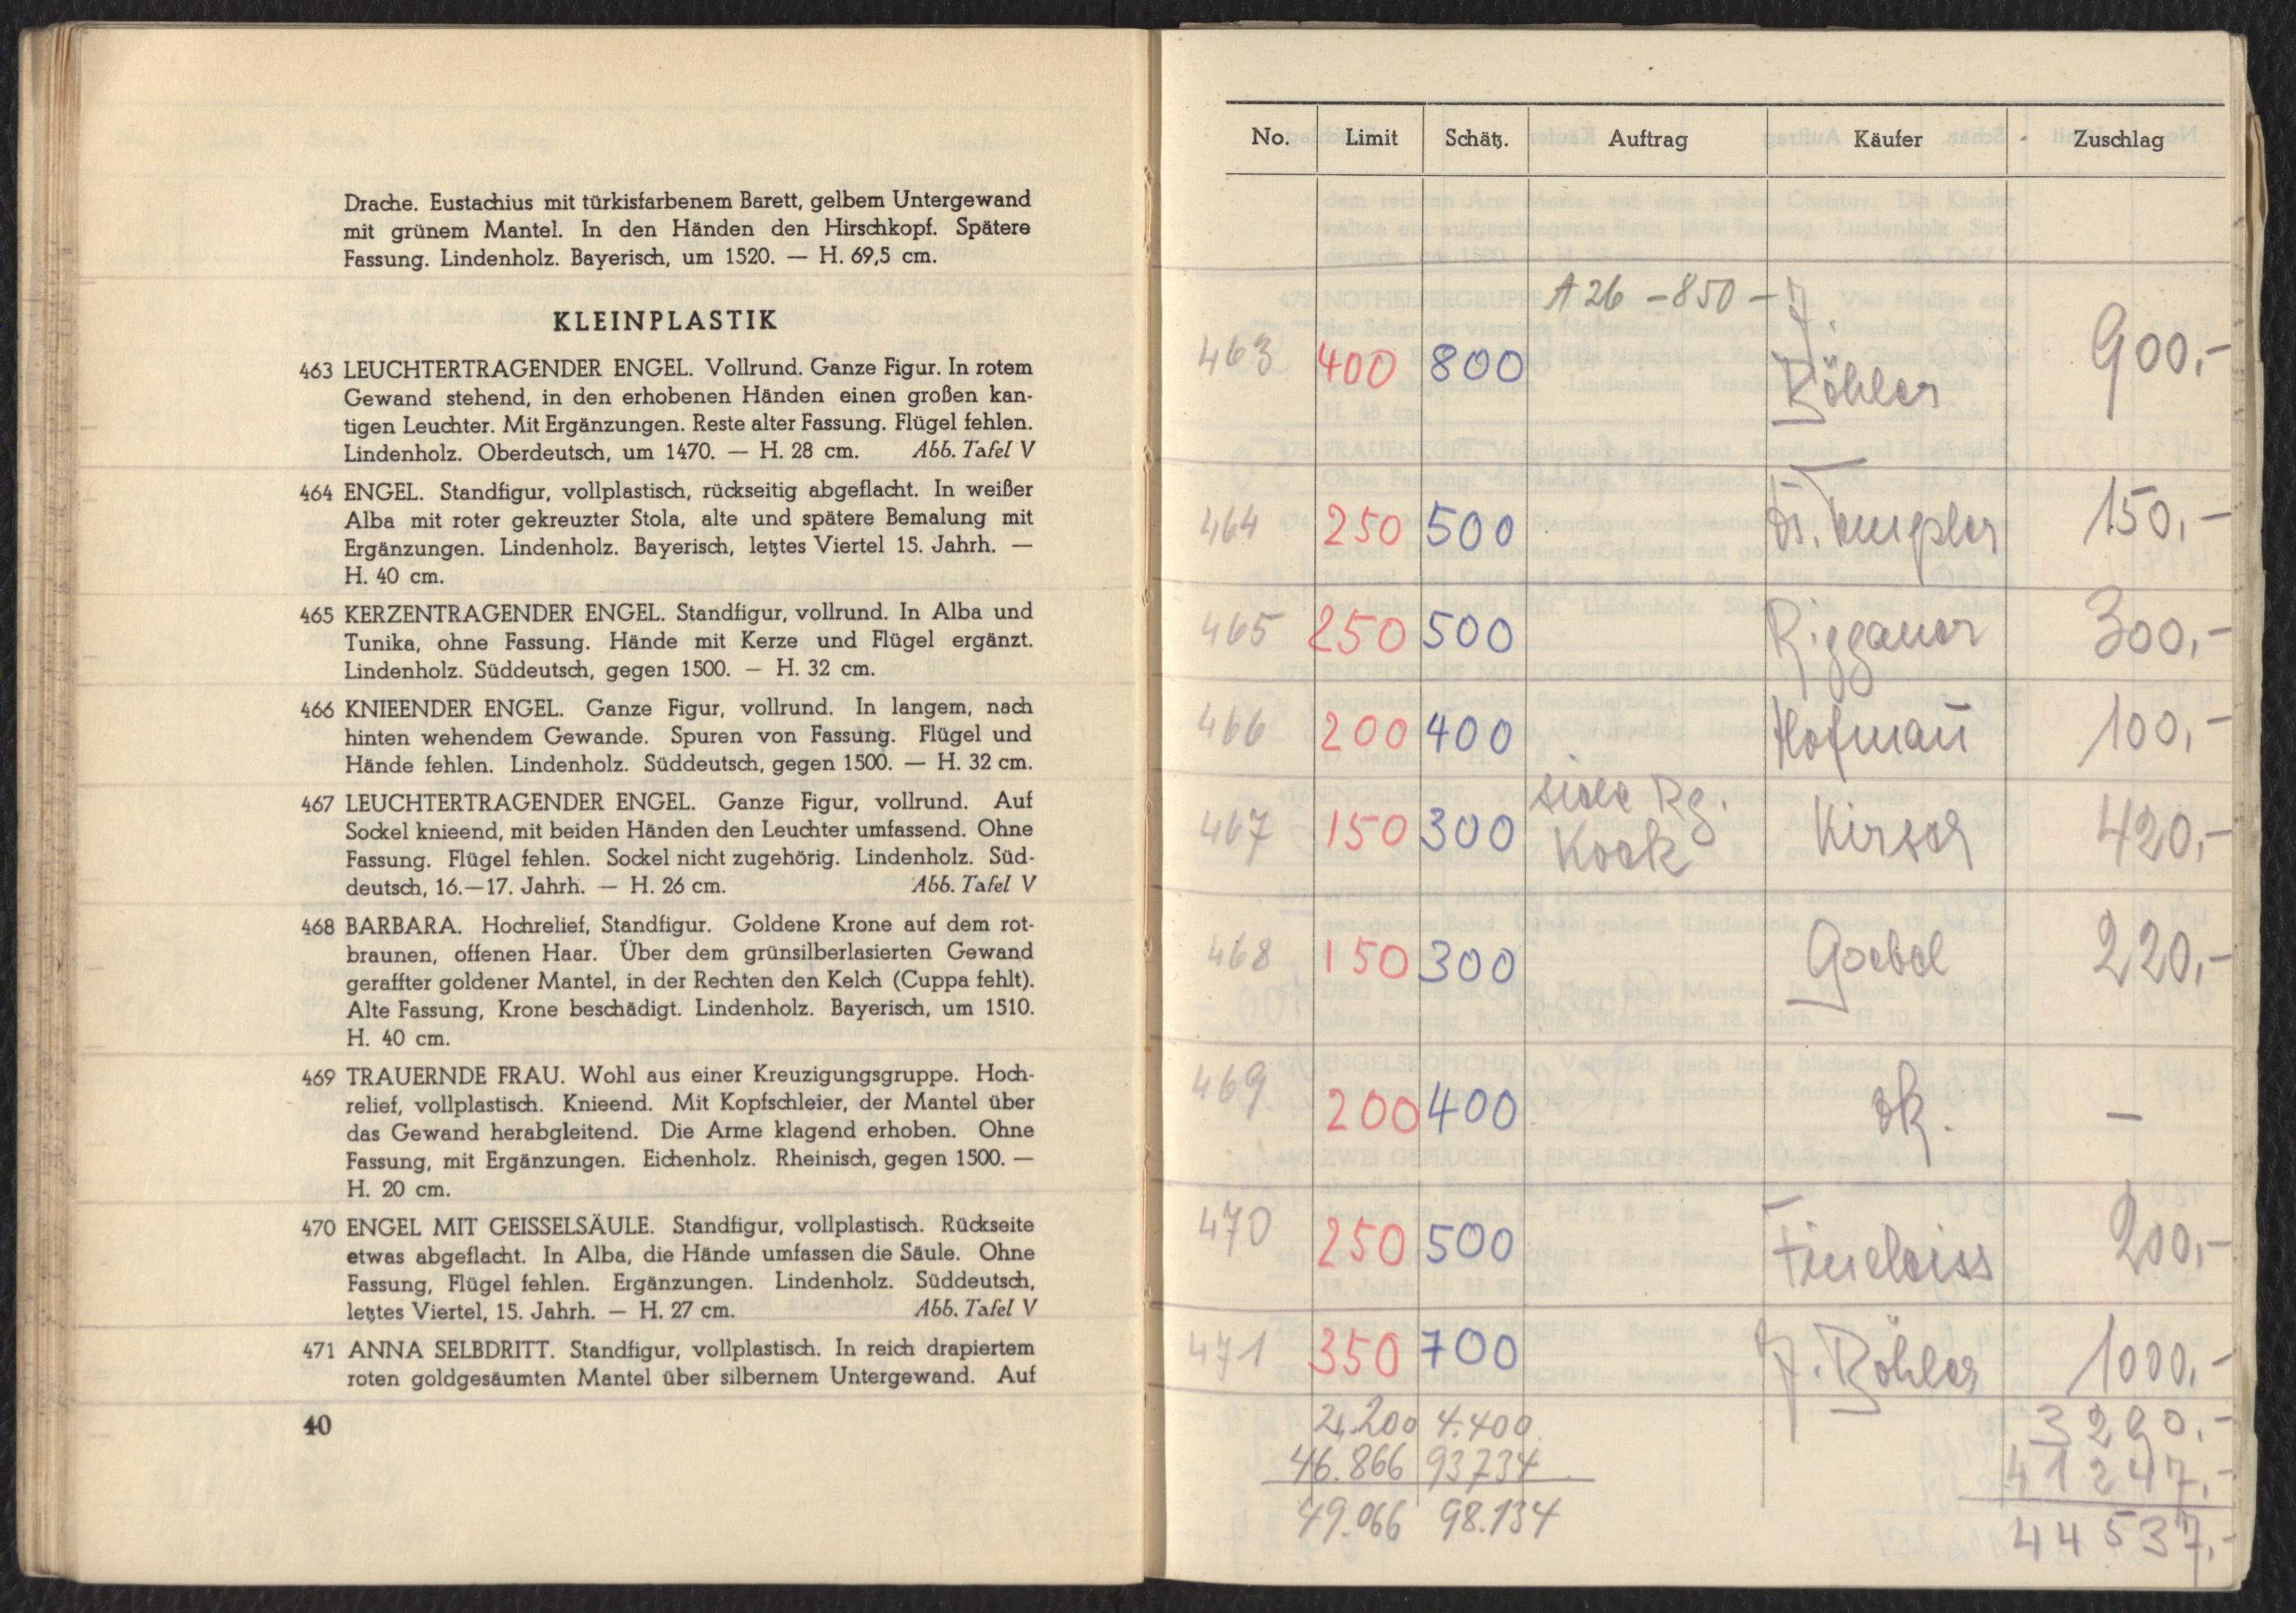 Drache. Eustachius mit türkisfarbenem Barett, gelbem Untergewand
mit grünem Mantel. In den Händen den Hirschkopf. Spätere
Fassung. Lindenholz. Bayerisch, um 1520. — H. 69,5 cm.
KLEINPLASTIK
463 LEUCHTERTRAGENDER ENGEL. Vollrund. Ganze Figur. In rotem
Gewand stehend, in den erhobenen Händen einen großen kan-
tigen Leuchter. Mit Ergänzungen. Reste alter Fassung. Flügel fehlen.
Lindenholz. Oberdeutsch, um 1470. — H. 28 cm. Abb. Tafel V
464 ENGEL. Standfigur, vollplastisch, rückseitig abgeflacht. In weißer
Alba mit roter gekreuzter Stola, alte und spätere Bemalung mit
Ergänzungen. Lindenholz. Bayerisch, letztes Viertel 15. Jahrh. —
H. 40 cm.
465 KERZENTRAGENDER ENGEL. Standfigur, vollrund. In Alba und
Tunika, ohne Fassung. Hände mit Kerze und Flügel ergänzt.
Lindenholz. Süddeutsch, gegen 1500. — H. 32 cm.
466 KNIEENDER ENGEL. Ganze Figur, vollrund. In langem, nach
hinten wehendem Gewande. Spuren von Fassung. Flügel und
Hände fehlen. Lindenholz. Süddeutsch, gegen 1500. — H. 32 cm.
467 LEUCHTERTRAGENDER ENGEL. Ganze Figur, vollrund. Auf
Sockel knieend, mit beiden Händen den Leuchter umfassend. Ohne
Fassung. Flügel fehlen. Sockel nicht zugehörig. Lindenholz. Süd-
deutsch, 16.—17. Jahrh. — H. 26 cm. Abb. Tafel V
468 BARBARA. Hochrelief, Standfigur. Goldene Krone auf dem rot-
braunen, offenen Haar. Über dem grünsilberlasierten Gewand
geraffter goldener Mantel, in der Rechten den Kelch (Cuppa fehlt).
Alte Fassung, Krone beschädigt. Lindenholz. Bayerisch, um 1510.
H. 40 cm.
469 TRAUERNDE FRAU. Wohl aus einer Kreuzigungsgruppe. Hoch-
relief, vollplastisch. Knieend. Mit Kopfschleier, der Mantel über
das Gewand herabgleitend. Die Arme klagend erhoben. Ohne
Fassung, mit Ergänzungen. Eichenholz. Rheinisch, gegen 1500. —
H. 20 cm.
470 ENGEL MIT GEISSELSÄULE. Standfigur, vollplastisch. Rückseite
etwas abgeflacht. In Alba, die Hände umfassen die Säule. Ohne
Fassung, Flügel fehlen. Ergänzungen. Lindenholz. Süddeutsch,
letztes Viertel, 15. Jahrh. — H. 27 cm. Abb. Tafel V
471 ANNA SELBDRITT. Standfigur, vollplastisch. In reich drapiertem
roten goldgesäumten Mantel über silbernem Untergewand. Auf
40
No. Limit Schätz. Auftrag Käufer Zuschlag
A 26 – 850 –
463 400 800 J. Böhler 900,–
464 250 500 Dr. Templer 150,–
465 250 500 Riggauer 300,–
466 200 400 Hofman̄ 100,–
467 150 300 Kook Kirsch 420,–
468 150 300 Goebel 220,–
469 200 400 –
470 250 500 200,–
471 350 700 J. Böhler 1000,–
2.200 4.400 3290.–
46.866 93734 41247,–
49.066 98.134 44537,–